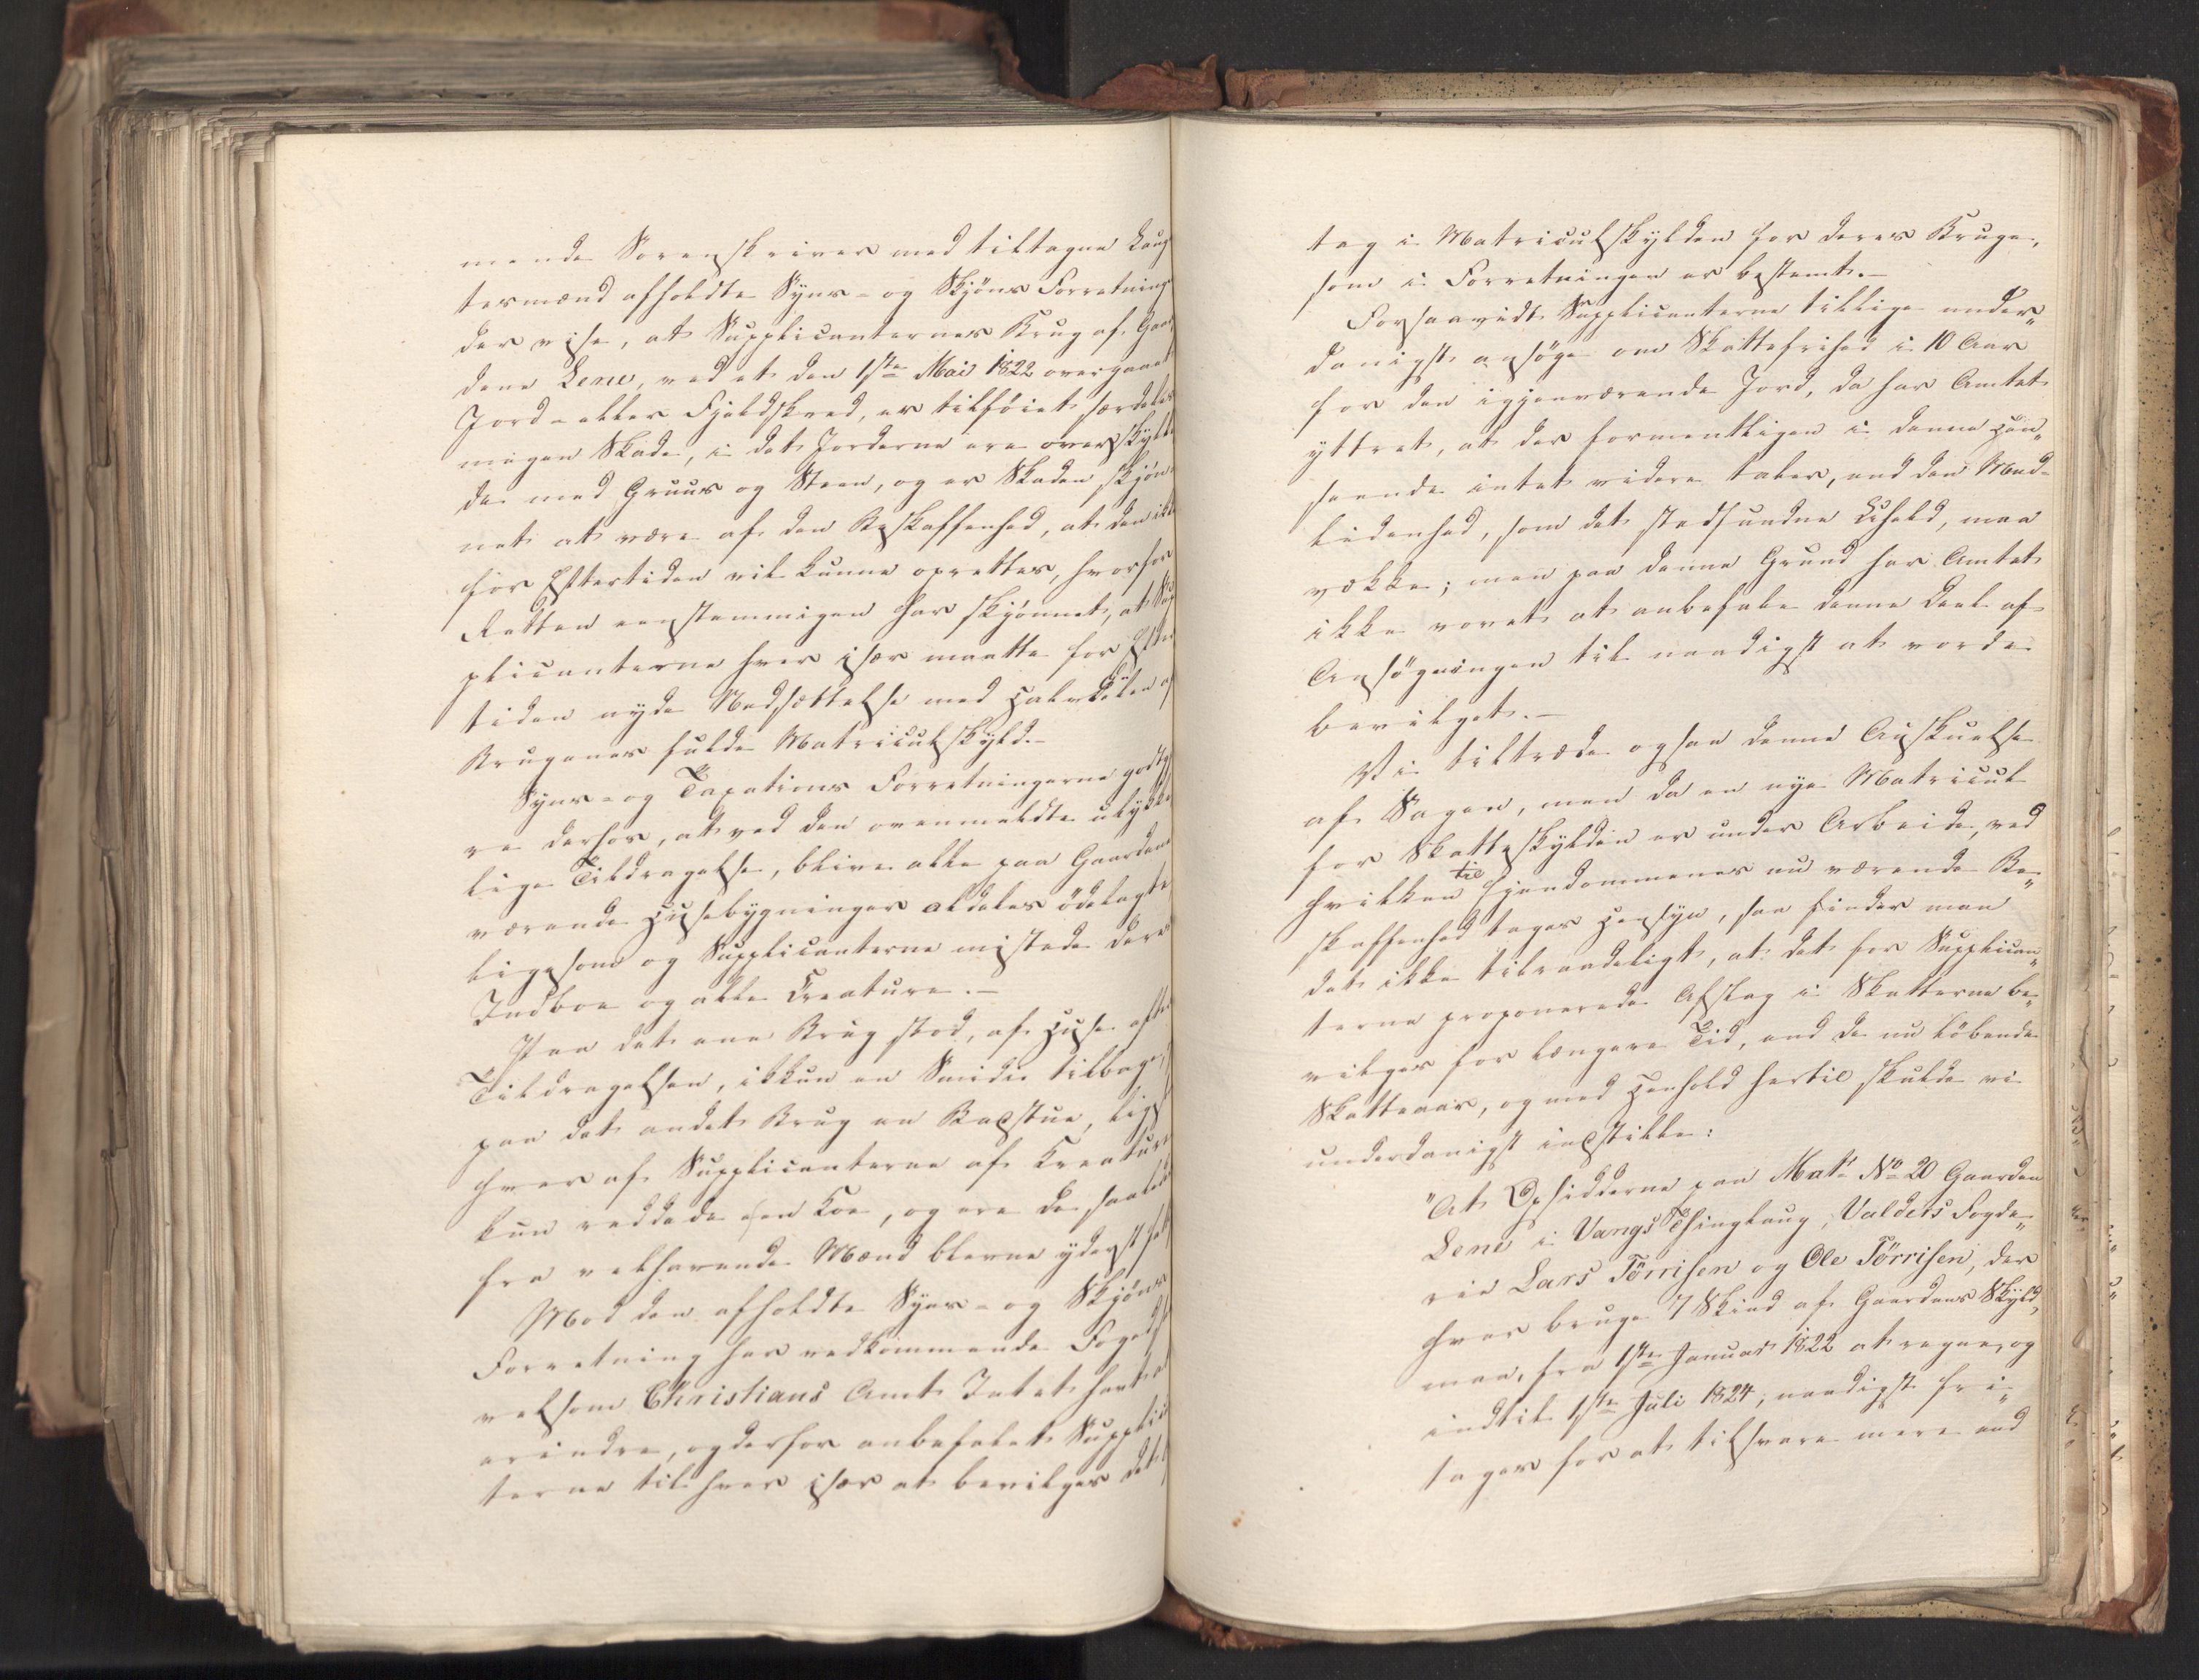 mende Sorenskriver med tiltagne Laug
tesmænd afholdte Syns- og Skjöns Forretning
der vise, at Supplicanternes Brug af Gaar
dene Lene, ved et den 1ste Mai 1822 overgaaet
Jord- eller Fjeldskred, er tilföiet særdeles
megen Skade, i det Jorderne ere overskyl
de med Gruus og Steen, og er Skaden skjön
net at være af den Beskaffenhed, at den ikke
for Eftertiden vil kunne oprettes, hvorfor
Retten eenstemmigen har skjönnet, at Sup
plicanterne hver især maatte for Efter
tiden nyde Nedsættelse med Halvdelen af
Brugenes fulde Matriculskyld.-
Syns- og Taxations Forretningerne godtgjö
re derhos, at ved den ovenmeldte ulykke
lige Tildragelse, bleve alle paa Gaardene
værende Huusebygninger aldeles ödelagte
ligesom og Supplicanterne mistede deres
Indboe og alle Creature.-
Paa det ene Brug stod, af Huse efter
Tildragelsen, ikkun en Smidie tilbage,
paa det andet Brug en Badstue, lige
hver af Supplicanterne af Kreature
kun reddede een Koe, og ere de saaledes
fra velhavende Mænd blevne yderst
Mod den afholdte Syns- og Skjöns
Forretning har vedkommende Foged
velsom Christians Amt Intet havt at
erindre, og derfor anbefalet Supplican
terne til hver især at bevilges det
tag i Matriculskylden for deres Bruge,
som i Forretningen er bestemt.-
Forsaavidt Supplicanterne tillige under„
danigst ansöge om Skattefrihed i 10 Aar
for den igjenværende Jord, da har Amtet
yttret, at der formentligen i denne Hen„
seende intet videre taler, end den Med-
lidenhed, som det stedfundne Uheld, maa
vække; men paa denne Grund har Amtet
ikke vovet at anbefale denne Deel af
Ansögningen til naadigst at vorde
bevilget.-
Vi tiltræde ogsaa denne Anskuelse
af Sagen, men da en nye Matricul
for Skatteskylden er under Arbeide, ved
hvilken til Ejendommenes nu værende Be„
skaffenhed tages Hensyn, saa finder man
det ikke tilraadeligt, at det for Supplican„
terne proponerede Afslag i Skatterne be„
vilges for længere Tid, end de nu löbende
Skatteaar, og med Henhold hertil skulde vi
underdanigst indstille:
"At Opsidderne paa Mat: No 20 Gaarden
Lene i Vangs Thinglaug, Valders Fogde„
rie Lars Törrisen og Ole Törrisen, der
hver bruge 7 Skind af Gaardens Skyld,
maa, fra 1ste Januar 1822 at regne, og
indtil 1ste Juli 1824, naadigst fri„
tages for at tilsvare mere end